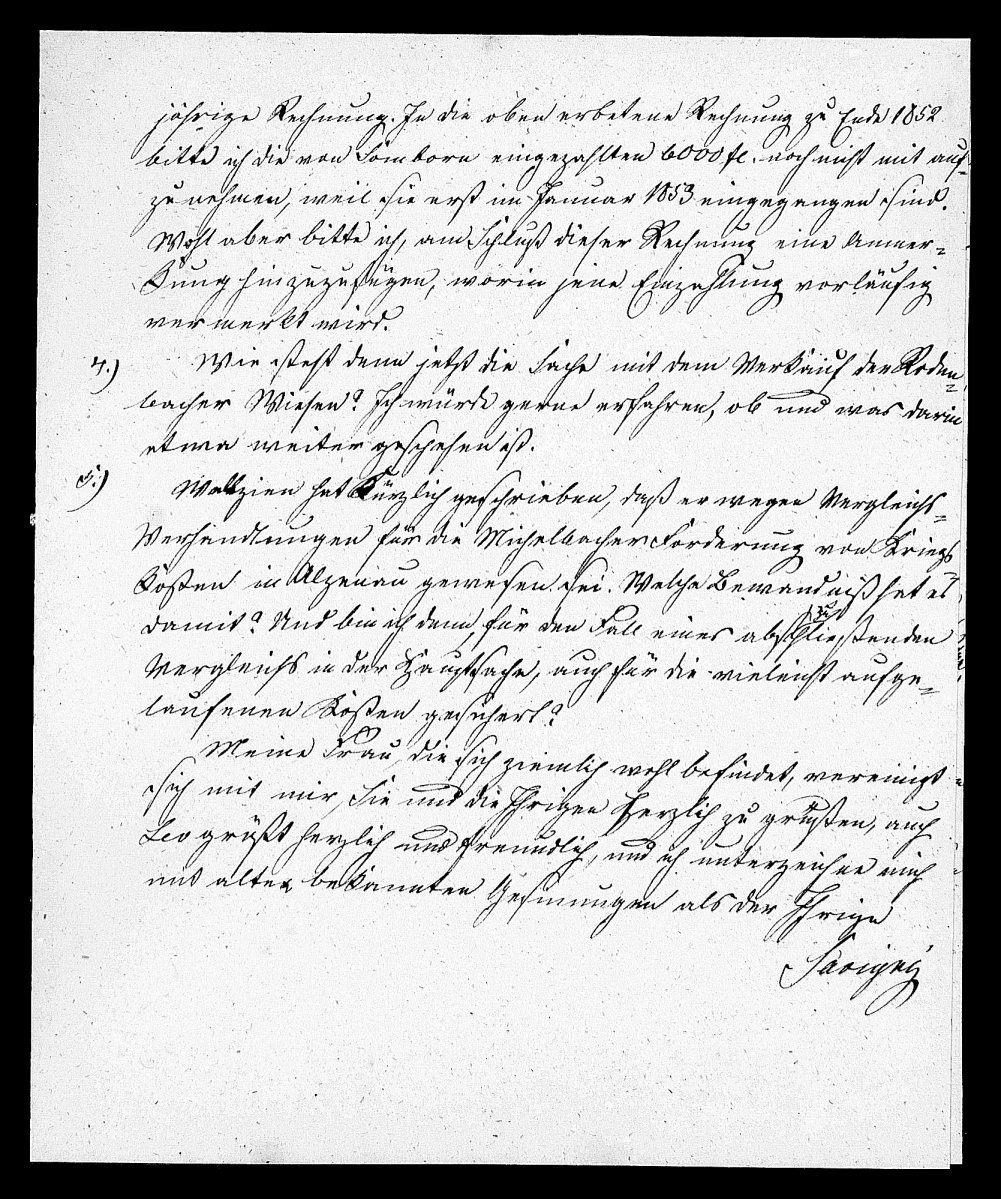 jährige Rechnung. In die oben erbetene Rechnung zu Ende 1852
bitte ich die von Somborn eingezahlten 6000 fl. noch nicht mit auf-
zu nehmen, weil sie erst im Januar 1853 eingegangen sind.
Wohl aber bitte ich, am Schluß dieser Rechnung eine Anmer-
kung hinzuzufügen, worin jene Einzahlung vorläufig
vermerkt wird.
4.) Wie steht denn jetzt die Sache mit dem Verkauf der Roden-
bacher Wiesen? Ich würde gerne erfahren, ob und was darin
etwa weiter geschehen ist.
5.) Wallzien hat kürzlich geschrieben, daß er wegen Vergleichs-
Verhandlungen für die Michelbacher Forderung von Kriegs-
kosten in Alzenau gewesen sei. Welche Bewandniß hat es
damit? Und bin ich denn, für den Fall eines abzuschließenden
Vergleichs in der Hauptsache, auch für die vieleicht aufge-
laufenen Kosten gesichert?
Meine Frau, die sich ziemlich wohl befindet, vereinigt
sich mit mir, Sie und die Ihrigen herzlich zu grüßen, auch
Leo grüßt herzlich und freundlich, und ich unterzeichne mich
mit alten bekannten Gesinnungen als der Ihrige
Savigny